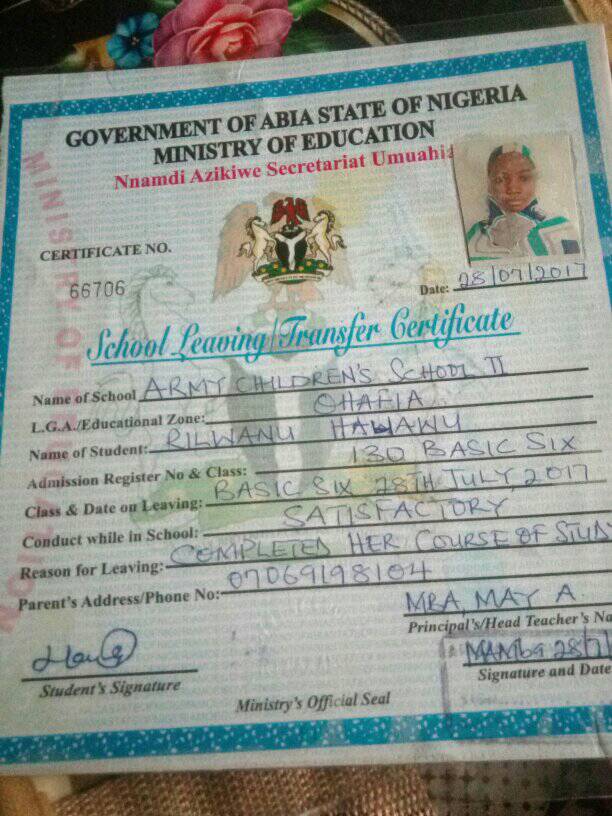 GOVERNMENT OF ABIA STATE OF NIGERIA
MINISTRY OF EDUCATION
Nnamdi Azikiwe Secretariat Umuahia
CERTIFICATE NO.
66706
Date: 28/07/2017
School Leaving/Transfer Certificate
Name of School ARMY CHILDREN'S SCHOOL II
L.G.A./Educational Zone: OHAFIA
Name of Student: RILWANU HAWAWU
Admission Register No & Class: 130 BASIC SIX
Class & Date on Leaving: BASIC SIX 28TH JULY, 2017
Conduct while in School: SATISFACTORY
Reason for Leaving: COMPLETED HER COURSE OF STUD
Parent's Address/Phone No: 07069198104
MBA, MAY A.
Principal's/Head Teacher's Na
28/7/
Student's Signature
Signature and Date
Ministry's Official Seal
MINISTRY OF EDUCATION